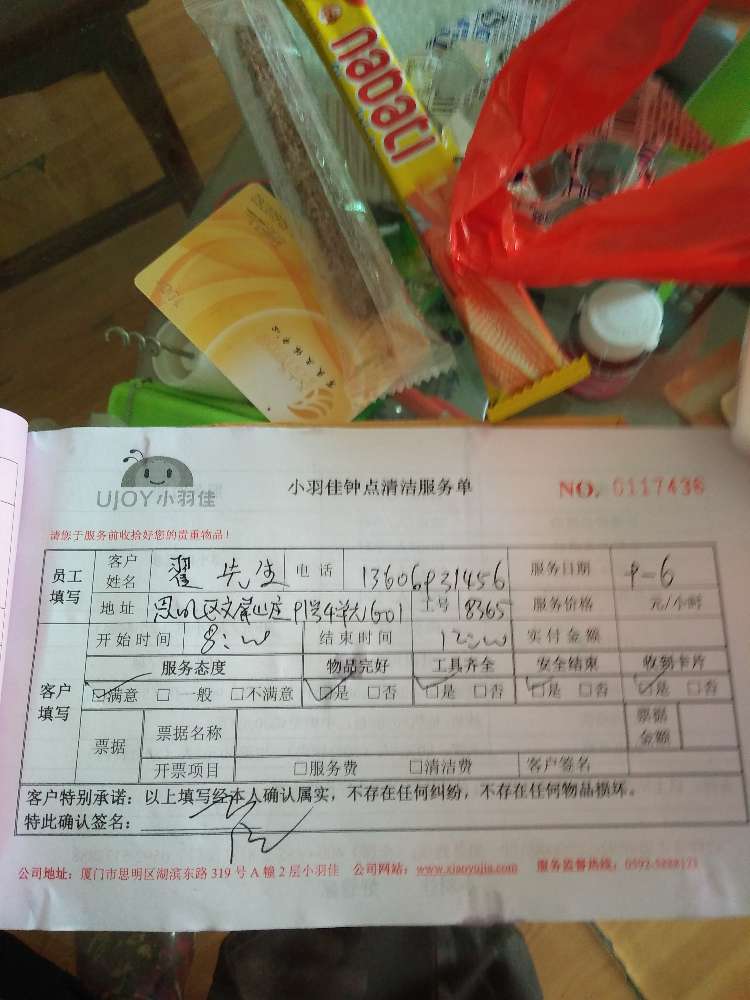 nabati
UJOY小羽佳
小羽佳钟点清洁服务单
NO. 0117436
请您于服务前收拾好您的贵重物品!
员工填写
客户姓名 翟先生 电话 13606931456 服务日期 9-6
地址 工号 8365 服务价格 元/小时
客户填写
开始时间 8:00 结束时间 12:00 实付金额
服务态度 物品完好 工具齐全 安全结束 收到卡片
☑满意 □一般 □不满意 ☑是 □否 ☑是 □否 ☑是 □否 ☑是 □否
票据 票据名称 票据金额
开票项目 □服务费 □清洁费 客户签名
客户特别承诺:以上填写经本人确认属实,不存在任何纠纷,不存在任何物品损坏。
特此确认签名:
公司地址:厦门市思明区湖滨东路 319 号 A 幢 2 层小羽佳 公司网站:www.xiaoyujia.com 服务监督热线: